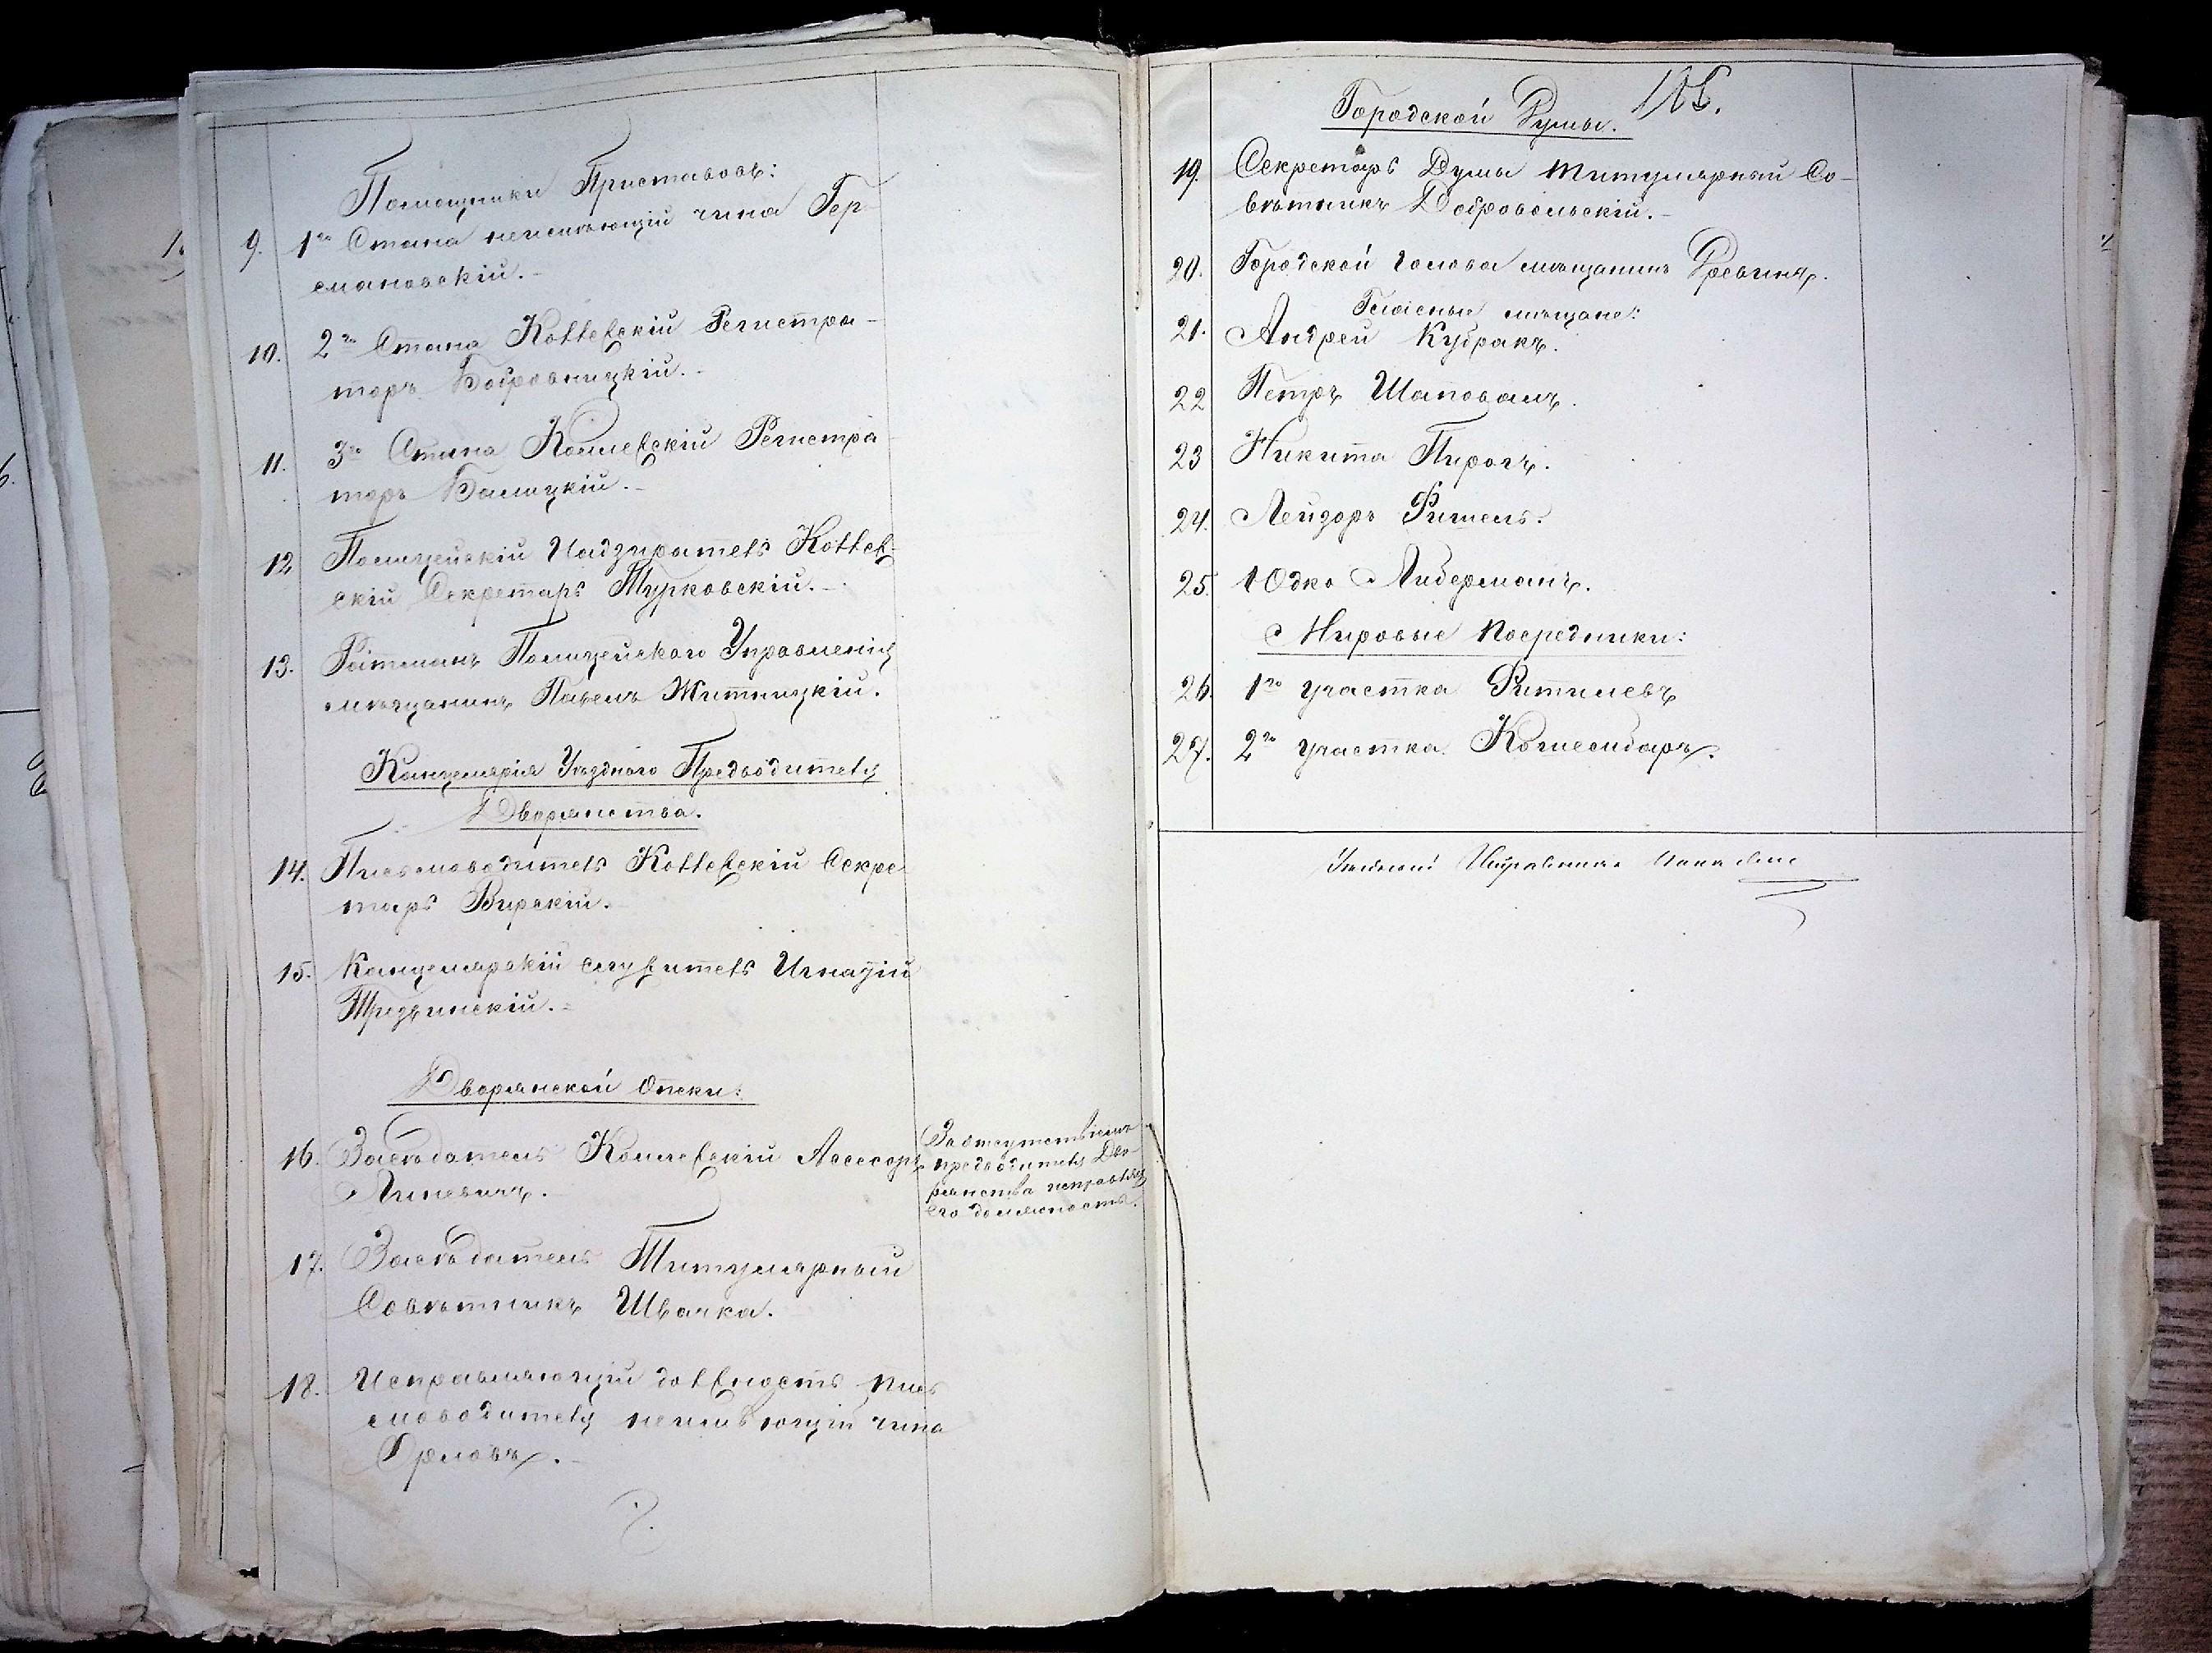 Помощники Приставовъ:
9. 1го Стана неимѣющій чина Гер-
смановскій.
10. 2го Стана Коллежскій Регистра-
торъ Бобровницкій.
11. 3го Стана Коллежскій Регистра-
торъ Балицкій.
12 Полицейскій Надзиратель Коллеж-
скій Секретарь Турковскій.
13. Ратманъ Полицейскаго Управленія
мѣщанинъ Павелъ Житницкій.
Канцелярія Уѣзднаго Предводителя
Дворянства.
14. Письмоводитель Коллежскій Секре
тарь Вирскій.
15. Канцелярскій служитель Игнацій
Тредзинскій.
Дворянской Опеки:
16. Засѣдатель Коллежскій Ассесоръ
Линевичъ.
За отсутствіемъ
предводителя Дво-
рянства исправляетъ
его должность.
17. Засѣдатель Титулярный
Совѣтникъ Швачка.
18. Исправляющій должность пись
моводителя неимѣющій чина
Орловъ.
Городской Думы. 106.
19. Секретарь Думы титулярный Со-
вѣтникъ Добровольскій.
20. Городской голова мѣщанинъ Ревинъ.
Гласные мѣщане:
21. Андрей Кубракъ.
22 Петръ Шаповалъ.
23 Никита Пирогъ.
24. Лейзоръ Фишель.
25. Юдко Либерманъ.
Мировые посредники:
26. 1го участка Ритилевъ
27. 2го участка
Уѣздный Исправникъ